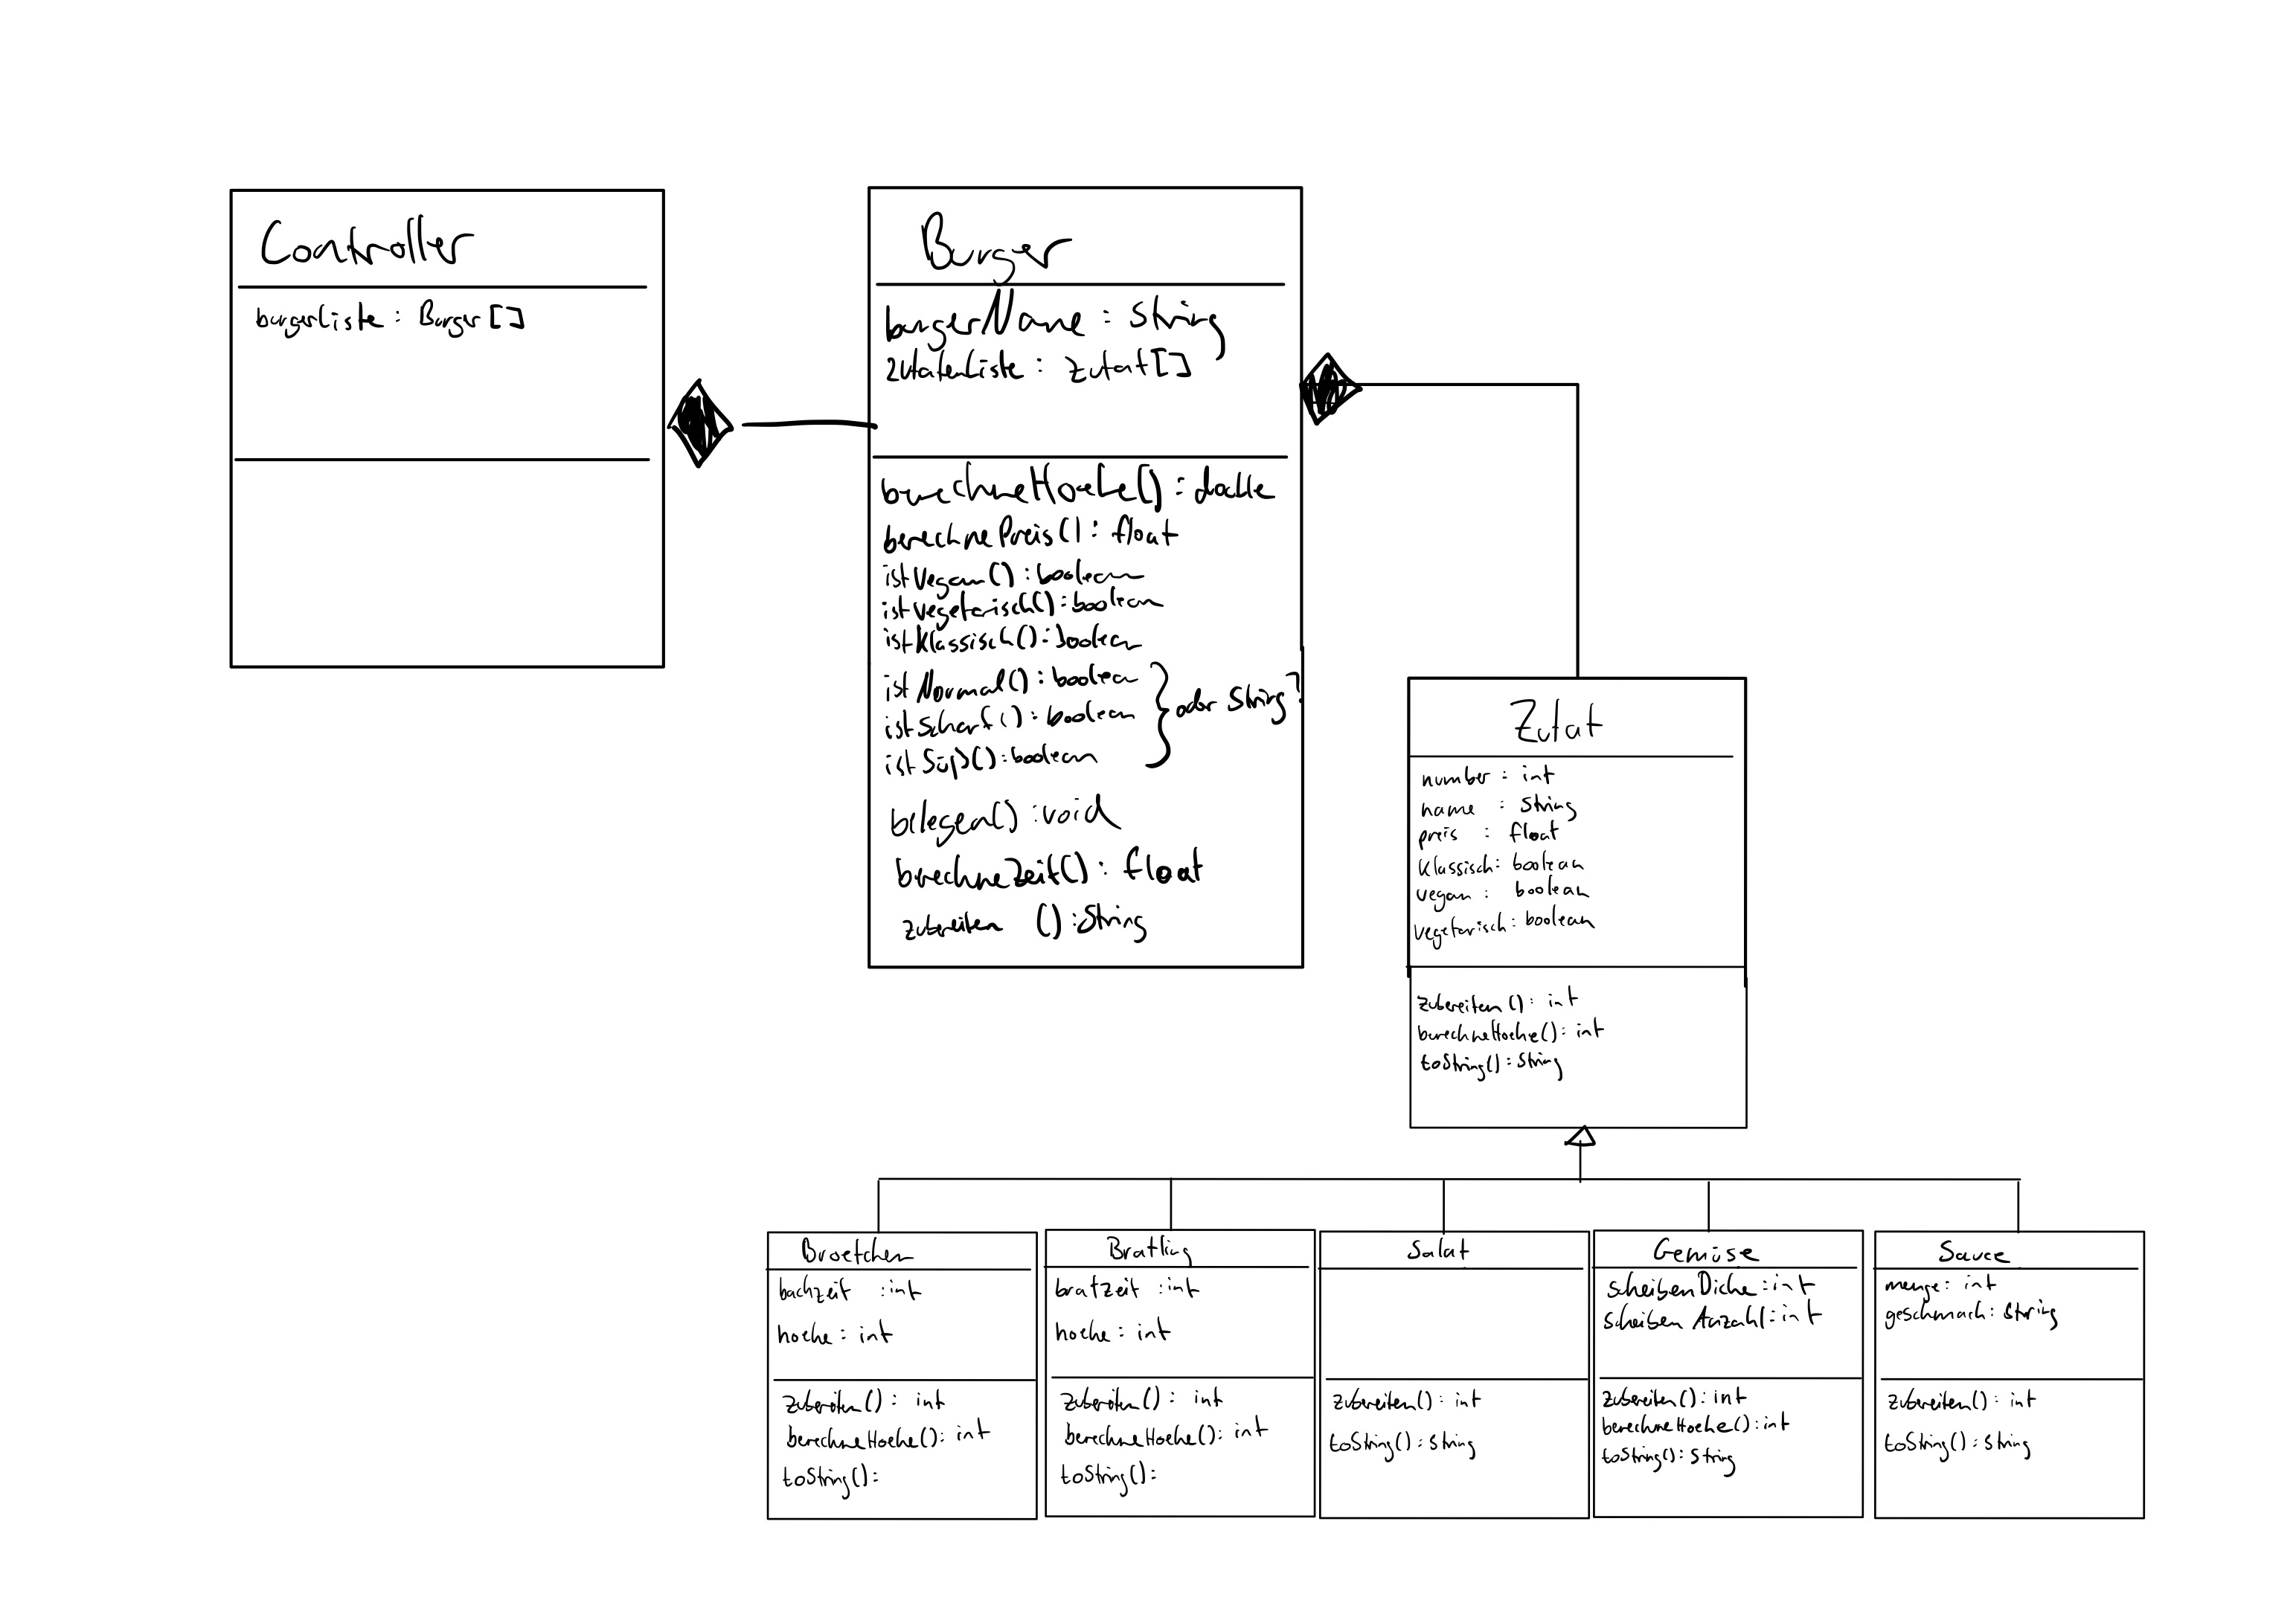 Controller
burgerListe : Burger[]
Burger
burgerName : String
zutatenListe : Zutat[]
berechneHoehe() : double
berechnePreis() : float
istVegan() : boolean
istVegetarisch() : boolean
istKlassisch() : boolean
istNormal() : boolean
istScharf() : boolean
istSüß() : boolean
oder String?
belegen() : void
berechneZeit() : float
zubereiten () : String
Zutat
number : int
name : String
preis : float
klassisch : boolean
vegan : boolean
vegetarisch : boolean
zubereiten() : int
berechneHoehe() : int
toString() : String
Broetchen
backzeit : int
hoehe : int
zubereiten() : int
berechneHoehe() : int
toString() :
Bratling
bratzeit : int
hoehe : int
zubereiten() : int
berechneHoehe() : int
toString() :
Salat
zubereiten() : int
toString() : String
Gemüse
scheibenDicke : int
scheibenAnzahl : int
zubereiten() : int
berechneHoehe() : int
toString() : String
Sauce
menge : int
geschmack : String
zubereiten() : int
toString() : String